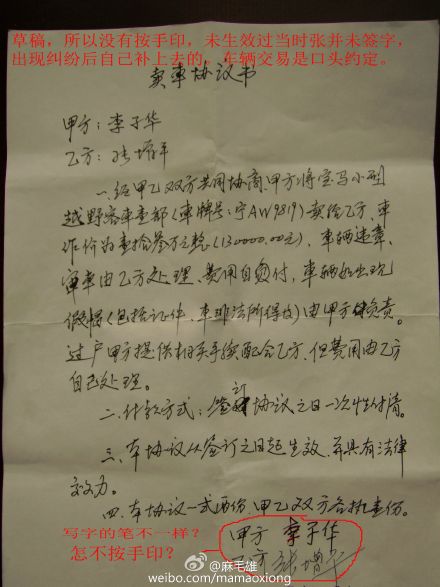 草稿，所以没有按手印，未生效过当时张并未签字，
出现纠纷后自己补上去的，车辆交易是口头约定。
卖车协议书
甲方：李子华
乙方：张增平
一、经甲乙双方共同协商，甲方将宝马小型
越野客车壹部（车牌号：宁AW9819）卖给乙方，车
作价为壹拾叁万元整（130000.00元），车辆违章、
审车由乙方处理、费用自付，车辆如出现
假档（包括证件、车非法所得等）由甲方负责。
过户甲方提供相关手续配合乙方，但费用由乙方
自己处理。
二、付款方式：签订协议之日一次性付清。
三、本协议从签订之日起生效，并具有法律
效力。
四、本协议一式两份，甲乙双方各执壹份。
写字的笔不一样？
怎不按手印？
甲方 李子华
乙方 张增平
@麻毛雄
weibo.com/mamaoxiong